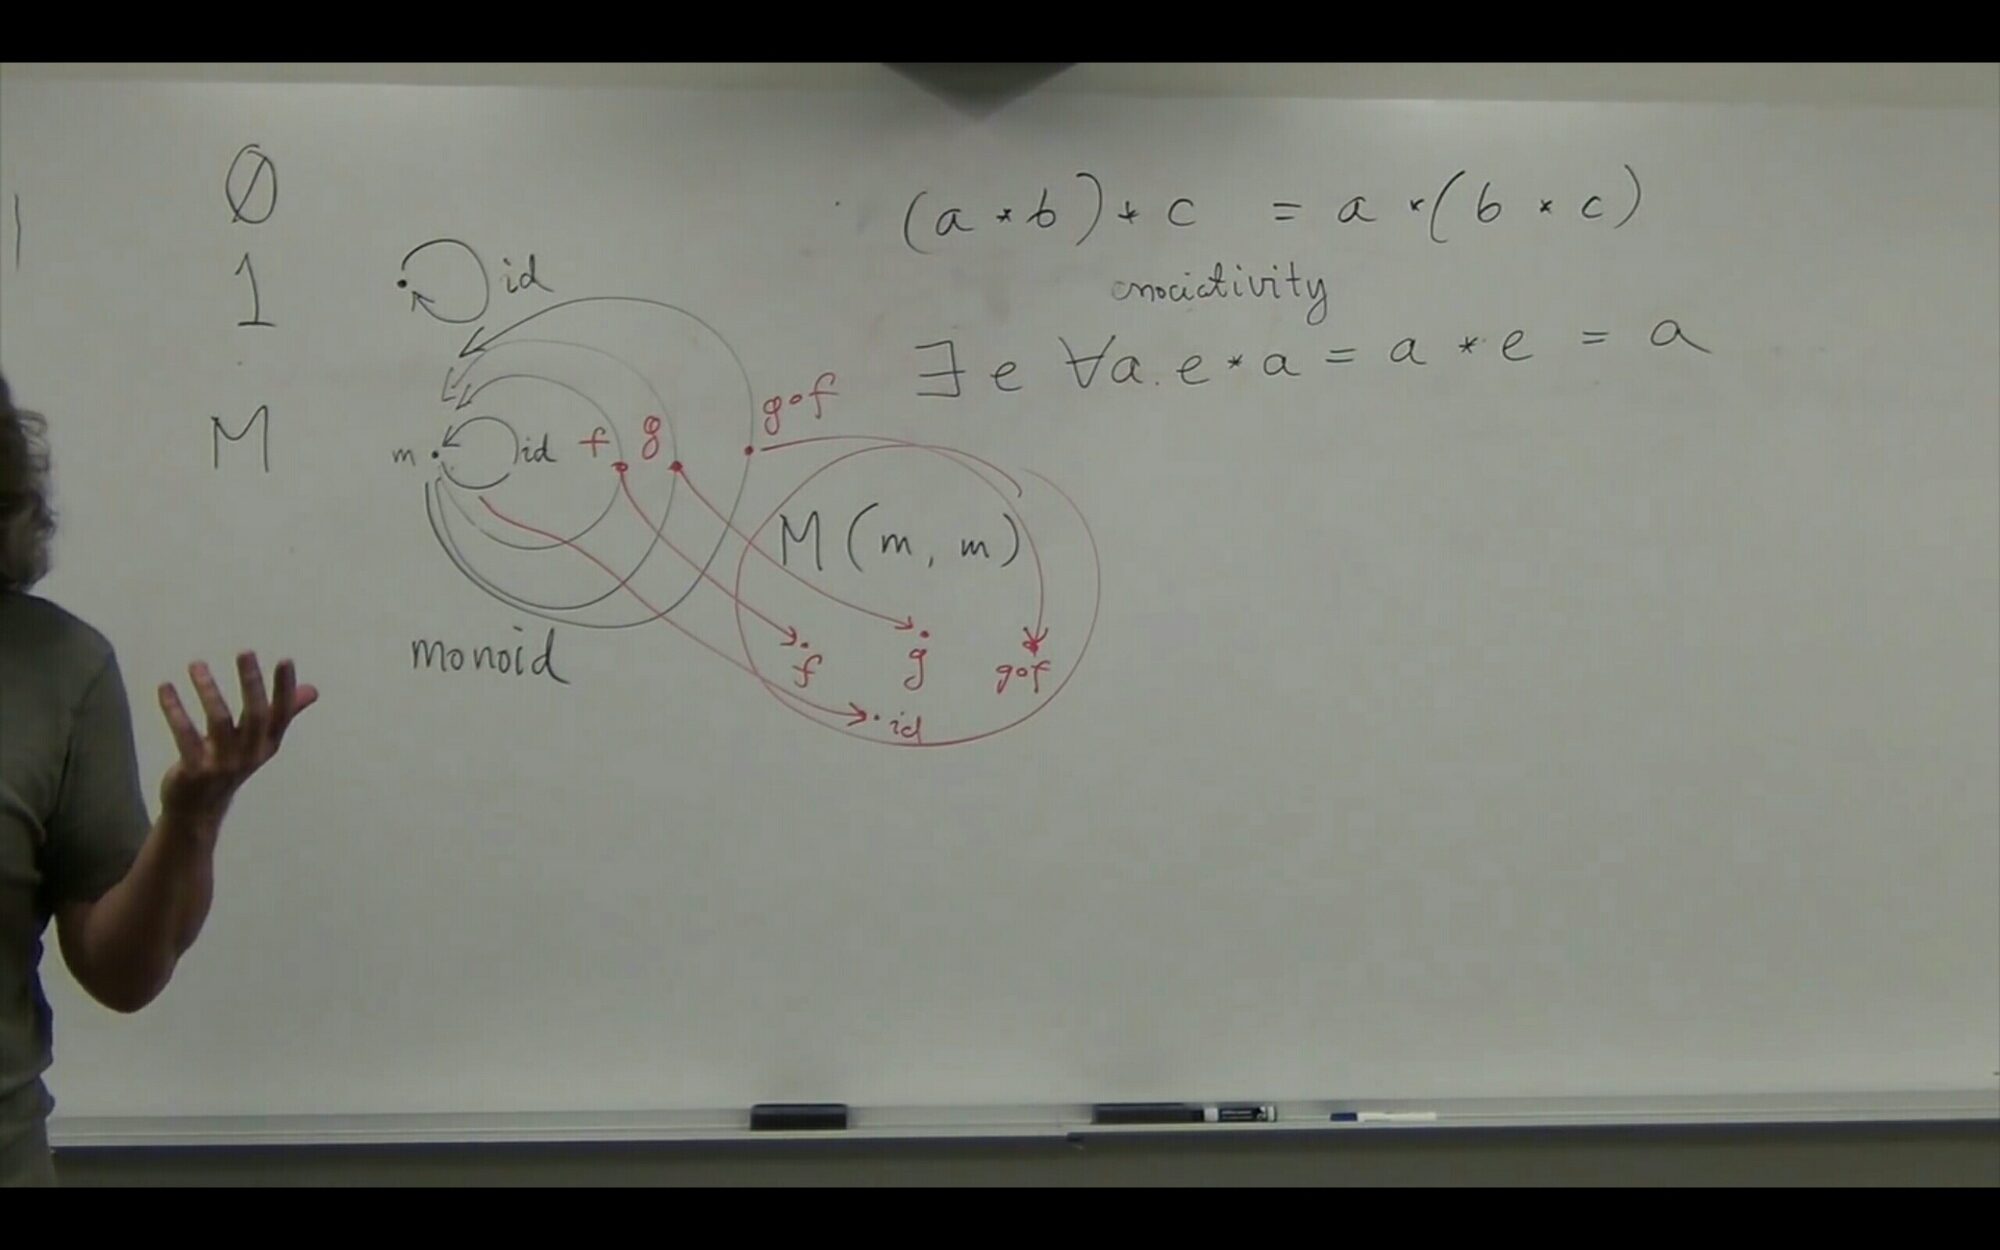 ∅
1
id
M
m
id
f
g
g∘f
monoid
M(m, m)
f
g
g∘f
id
(a * b) * c = a * (b * c)
associativity
∃ e ∀a. e * a = a * e = a